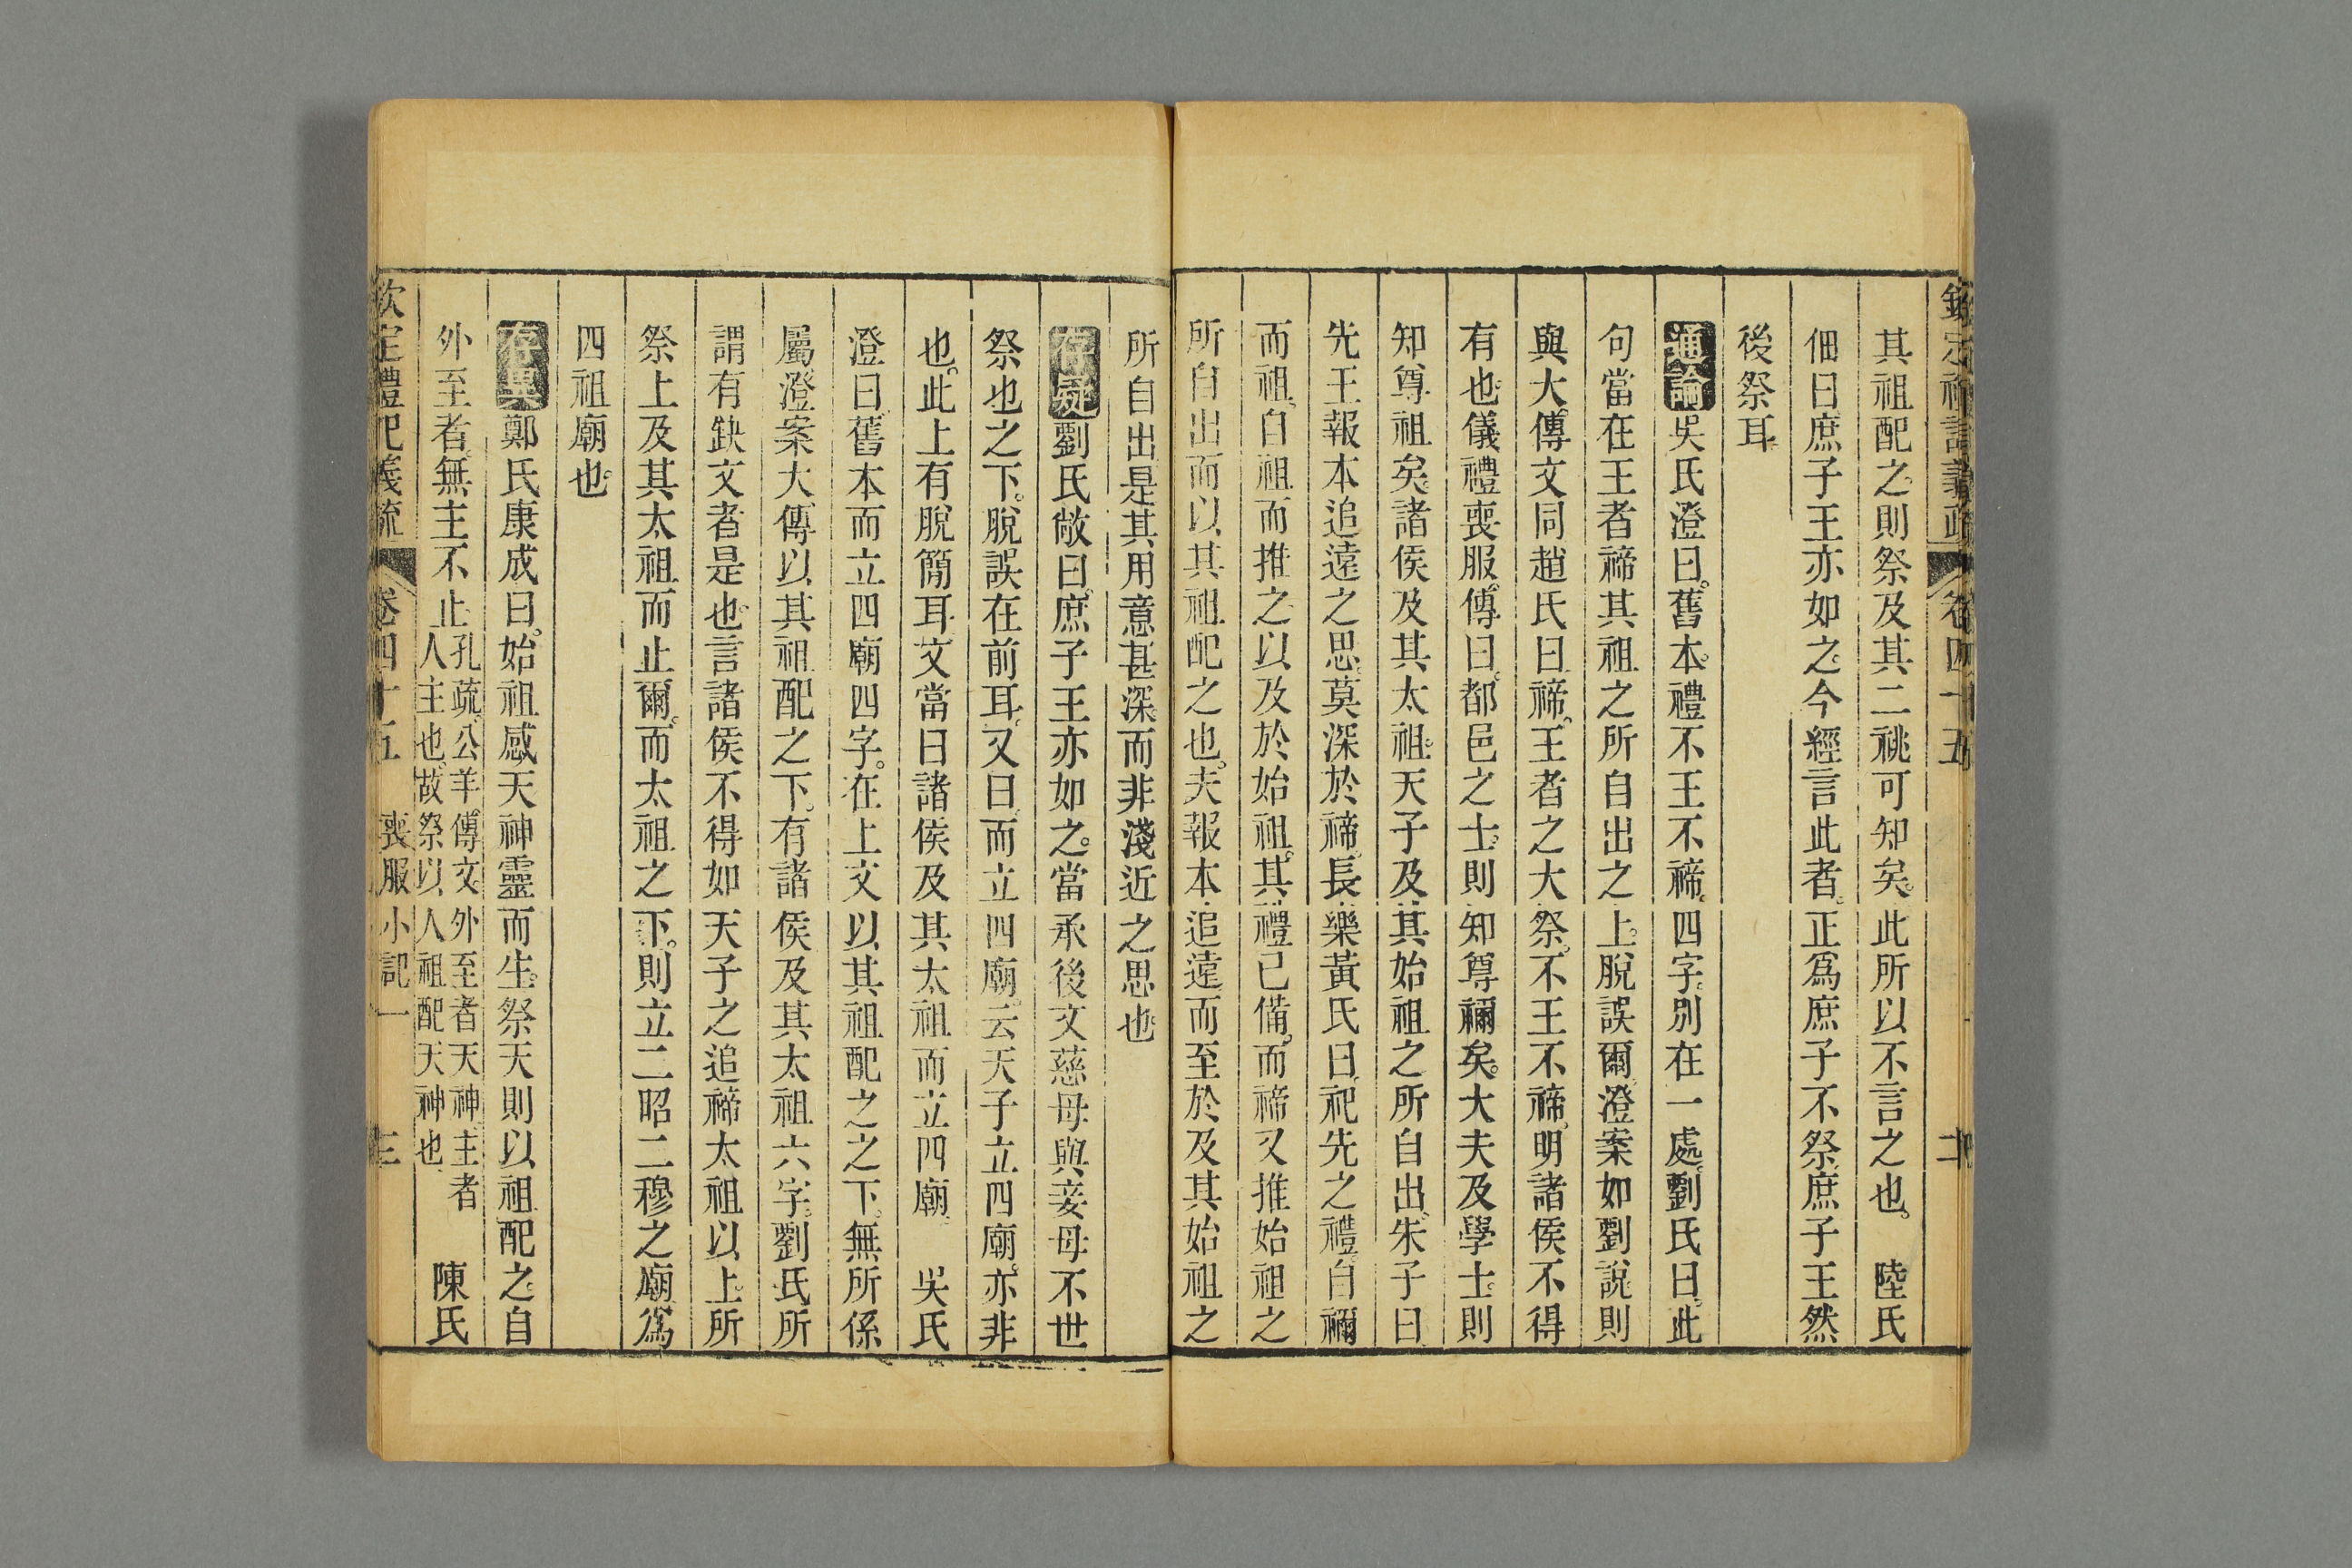 欽定禮記義疏 卷四十五
其祖配之則祭及其二祧可知矣。此所以不言之也。 陸氏
佃曰庶子王亦如之。今經言此者。正爲庶子不祭庶子王然
後祭耳
通論吳氏澄曰。舊本。禮不王不禘。四字。別在一處。劉氏曰。此
句當在王者禘其祖之所自出之上。脫誤爾。澄案如劉說。則
與大傳文同。趙氏曰。禘。王者之大祭。不王不禘。明諸侯不得
有也。儀禮喪服。傳曰。都邑之士。則知尊禰矣。大夫及學士。則
知尊祖矣。諸侯及其太祖。天子及其始祖之所自出。朱子曰
先王報本追遠之思。莫深於禘。長樂黃氏曰。祀先之禮。自禰
而祖。自祖而推之。以及於始祖。其禮已備。而禘又推始祖之
所自出。而以其祖配之也。夫報本追遠而至於及其始祖之
所自出。是其用意甚深而非淺近之思也
存疑劉氏敞曰。庶子王亦如之。當承後文慈母與妾母不世
祭也之下。脫誤在前耳。又曰。而立四廟。云天子立四廟。亦非
也。此上有脫簡耳。文當曰諸侯及其太祖而立四廟。 吳氏
澄曰。舊本而立四廟四字。在上文以其祖配之之下。無所係
屬。澄案大傳以其祖配之下。有諸侯及其太祖六字。劉氏所
謂有缺文者是也。言諸侯不得如天子之追禘太祖以上。所
祭上及其太祖而止爾。而太祖之下。則立二昭二穆之廟爲
四祖廟也
存異鄭氏康成曰。始祖感天神靈而生。祭天則以祖配之。自
外至者。無主不止孔疏。公羊傳文。外至者天神。主者
人主也。故祭以人祖配天神也 陳氏
欽定禮記義疏 卷四十五 喪服小記一 三